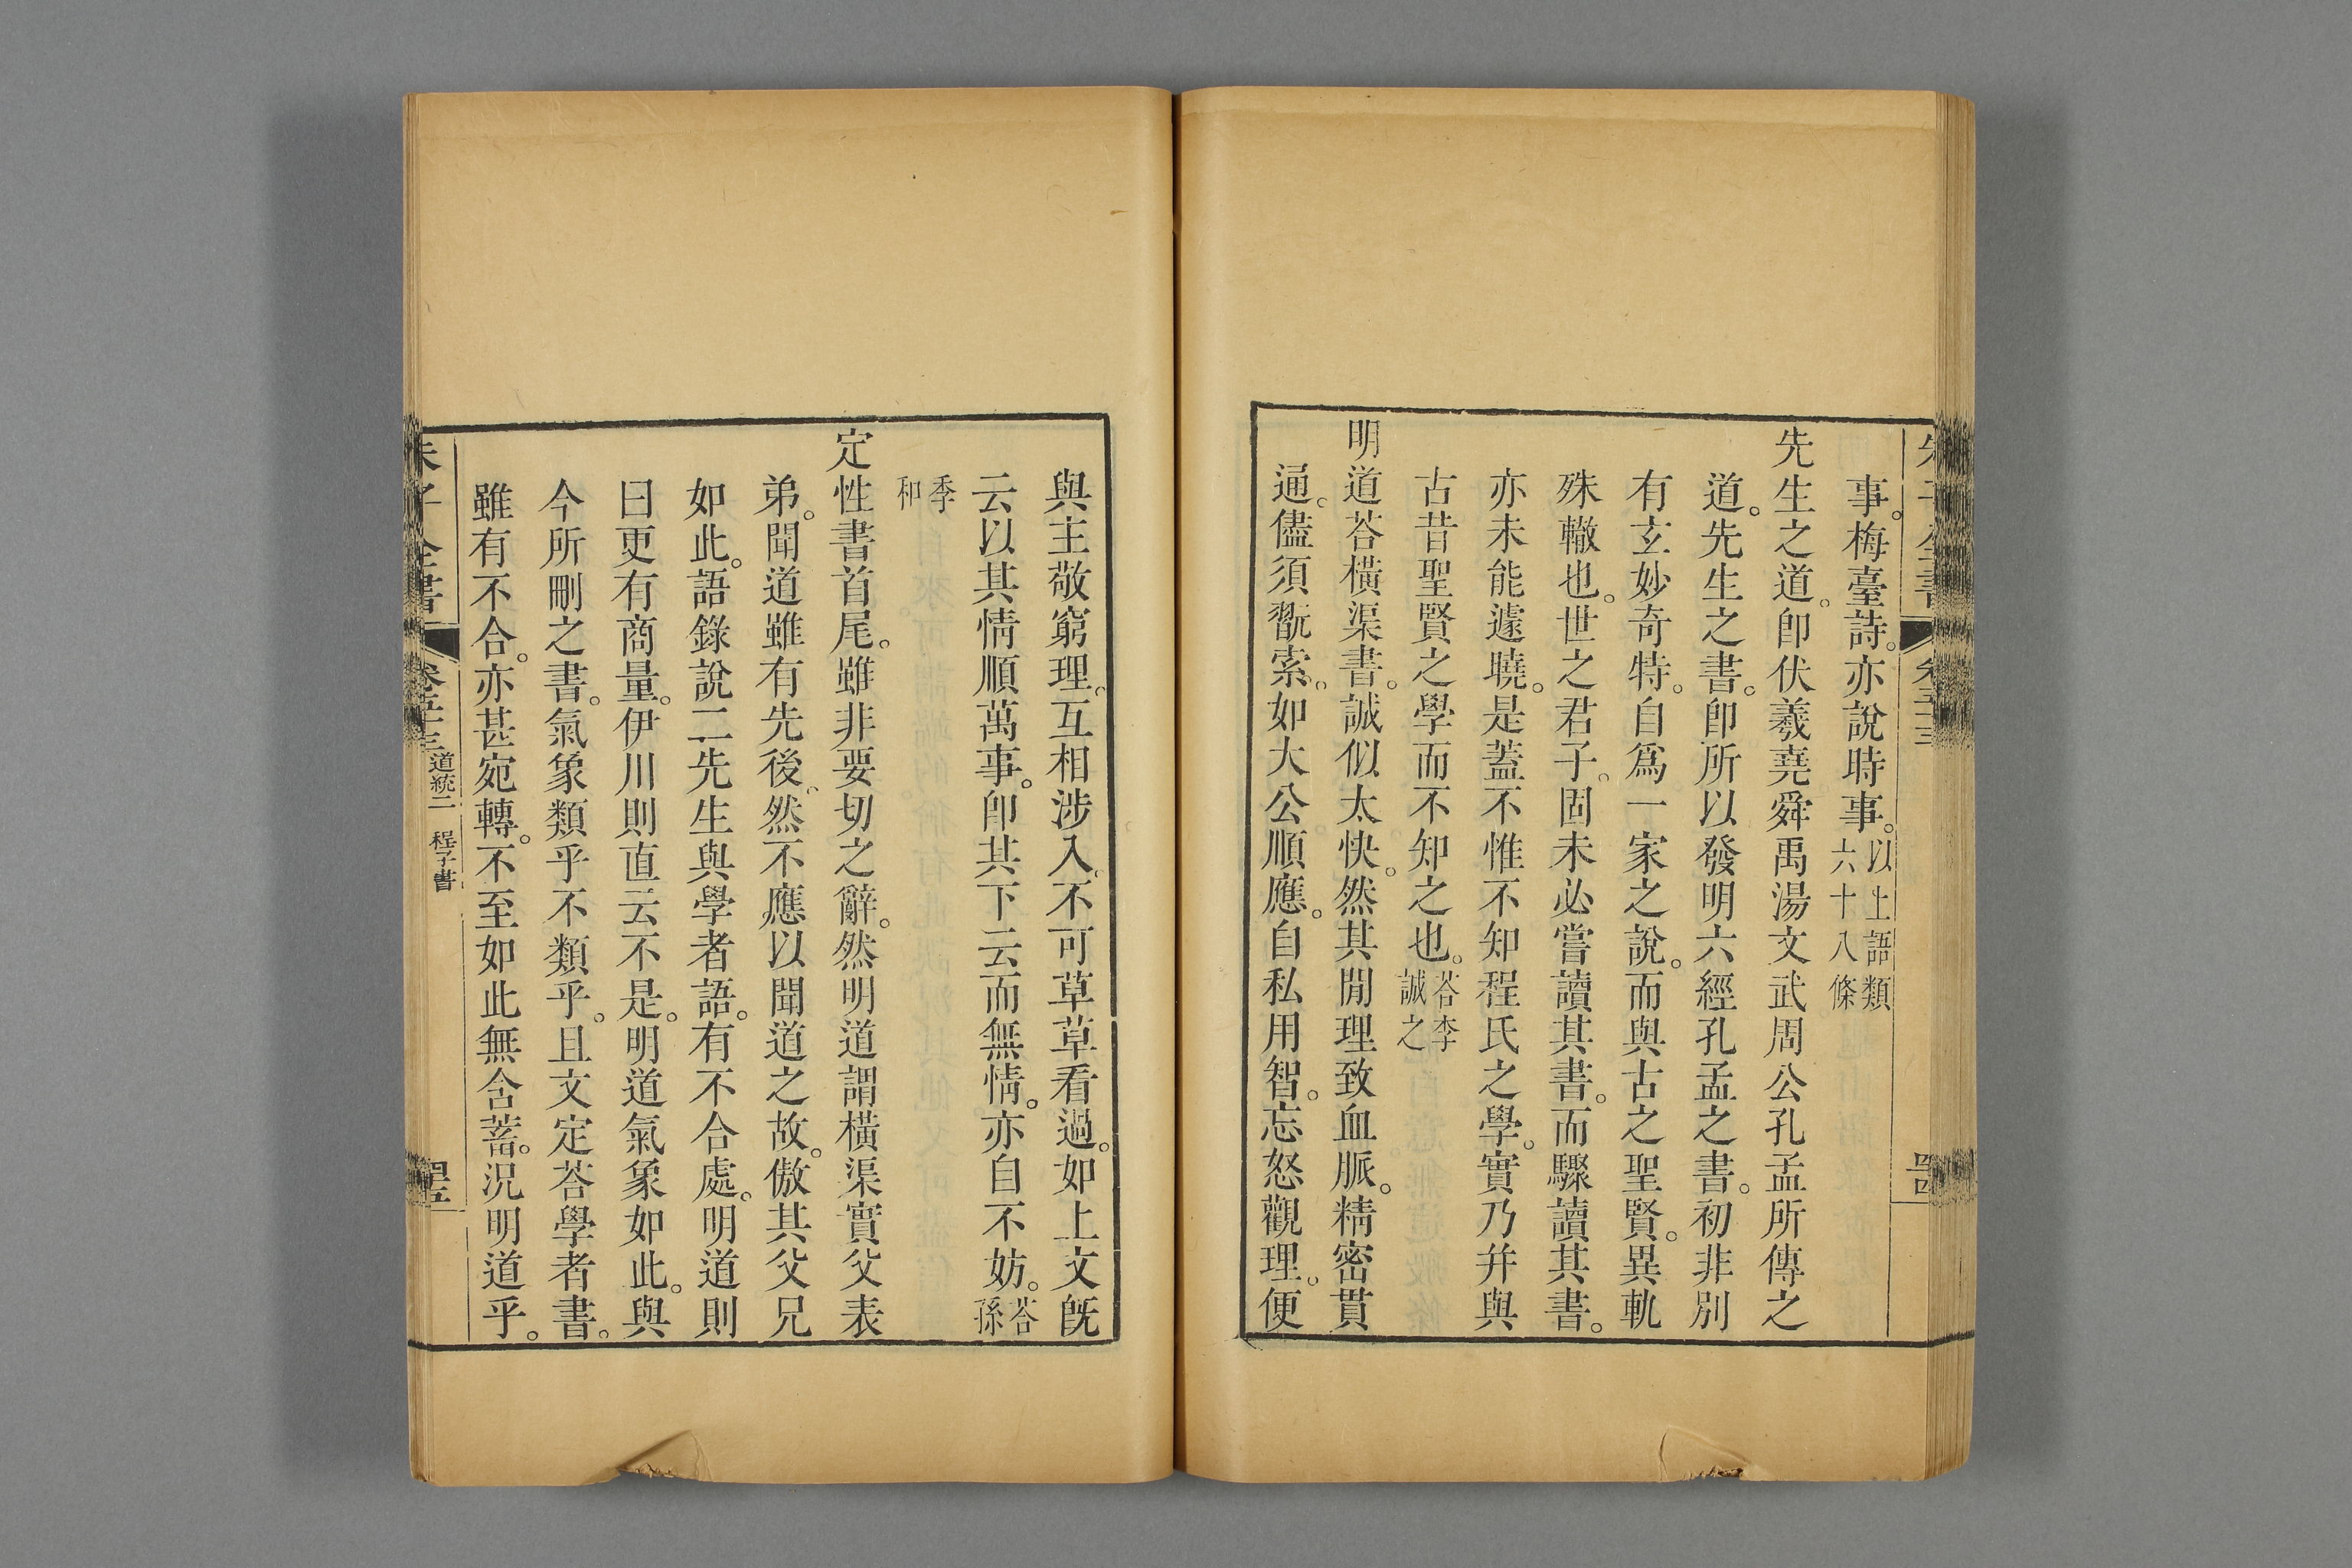 事。梅臺詩。亦說時事。以上語類六十八條
先生之道。卽伏羲堯舜禹湯文武周公孔孟所傳之
道。先生之書。卽所以發明六經孔孟之書。初非別
有玄妙奇特。自爲一家之說。而與古之聖賢。異軌
殊轍也。世之君子。固未必嘗讀其書。而驟讀其書。
亦未能遽曉。是蓋不惟不知程氏之學。實乃幷與
古昔聖賢之學而不知之也。荅李誠之
明道荅橫渠書。誠似太快。然其閒理致血脈。精密貫
通。儘須翫索。如大公順應。自私用智。忘怒觀理。便
與主敬窮理。互相涉入。不可草草看過。如上文旣
云以其情順萬事。卽其下云而無情。亦自不妨。荅孫
季和
定性書首尾。雖非要切之辭。然明道謂橫渠實父表
弟。聞道雖有先後。然不應以聞道之故。傲其父兄
如此。語錄說二先生與學者語。有不合處。明道則
曰更有商量。伊川則直云不是。明道氣象如此。與
今所刪之書。氣象類乎不類乎。且文定荅學者書。
雖有不合。亦甚宛轉。不至如此無含蓄。況明道乎。
朱子全書
卷五十三
道統二 程子書